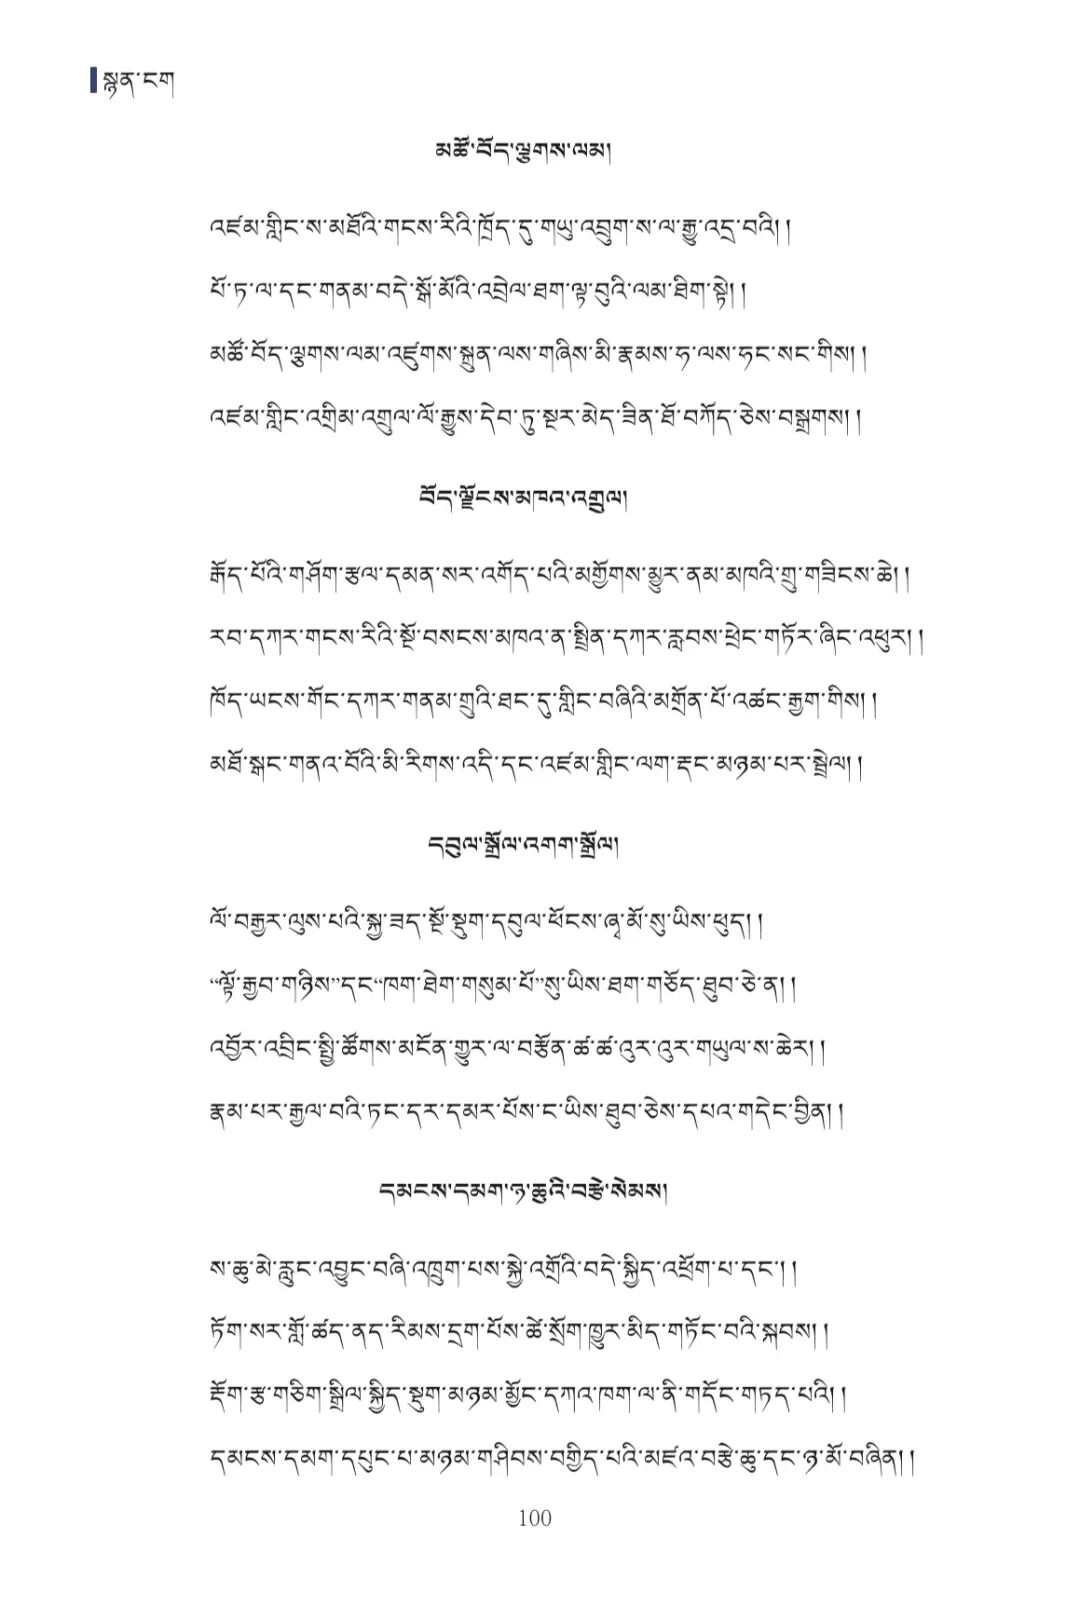 སྙན་ངག
མཚོ་བོད་ལྕགས་ལམ།
འཛམ་གླིང་ས་མཐོའི་གངས་རིའི་ཁྲོད་དུ་གཡུ་འབྲུག་ས་ལ་རྒྱུ་འདྲ་བའི། །
པོ་ཏ་ལ་དང་གནམ་བདེ་སྒོ་མོའི་འབྲེལ་ཐག་ལྟ་བུའི་ལམ་ཐིག་སྟེ། །
མཚོ་བོད་ལྕགས་ལམ་འཛུགས་སྐྲུན་ལས་གཞིས་མི་རྣམས་ཧ་ལས་ཧང་སང་གིས། །
འཛམ་གླིང་འགྲིམ་འགྲུལ་ལོ་རྒྱུས་དེབ་ཏུ་སྔར་མེད་ཟིན་ཐོ་བཀོད་ཅེས་བསྒྲགས། །
བོད་ལྗོངས་མཁའ་འགྲུལ།
རྒོད་པོའི་གཤོག་རྩལ་དམན་སར་འགོད་པའི་མགྱོགས་མྱུར་ནམ་མཁའི་གྲུ་གཟིངས་ཆེ། །
རབ་དཀར་གངས་རིའི་སྔོ་བསངས་མཁའ་ན་སྤྲིན་དཀར་རླབས་ཕྲེང་གཏོར་ཞིང་འཕུར། །
ཁོད་ཡངས་གོང་དཀར་གནམ་གྲུའི་ཐང་དུ་གླིང་བཞིའི་མགྲོན་པོ་འཚང་རྒྱག་གིས། །
མཐོ་སྒང་གནའ་བོའི་མི་རིགས་འདི་དང་འཛམ་གླིང་ལག་རྡང་མཉམ་པར་སྦྲེལ། །
དབུལ་སྒྲོལ་འགག་སྒྲོལ།
ལོ་བརྒྱར་ལུས་པའི་སྐྱ་ཟད་སྔོ་སྡུག་དབུལ་ཕོངས་ཞྭ་མོ་སུ་ཡིས་ཕུད། །
“ལྟོ་རྒྱབ་གཉིས”དང“ཁག་ཐེག་གསུམ་པོ”སུ་ཡིས་ཐག་གཅོད་ཐུབ་ཅེ་ན། །
འབྱོར་འབྲིང་སྤྱི་ཚོགས་མངོན་གྱུར་ལ་བརྩོན་ཚ་ཚ་འུར་འུར་གཡུལ་ས་ཆེར། །
རྣམ་པར་རྒྱལ་བའི་ཏང་དར་དམར་པོས་ང་ཡིས་ཐུབ་ཅེས་དཔའ་གདེང་བྱིན། །
དམངས་དམག་ཉ་ཆུའི་བརྩེ་སེམས།
ས་ཆུ་མེ་རླུང་འབྱུང་བཞི་འཁྲུག་པས་སྐྱེ་འགྲོའི་བདེ་སྐྱིད་འཕྲོག་པ་དང་། །
ཏོག་སར་གློ་ཚད་ནད་རིམས་དྲག་པོས་ཚེ་སྲོག་ཁྱུར་མིད་གཏོང་བའི་སྐབས། །
རྡོག་རྩ་གཅིག་སྒྲིལ་སྐྱིད་སྡུག་མཉམ་མྱོང་དཀའ་ཁག་ལ་ནི་གདོང་གཏད་པའི། །
དམངས་དམག་དཔུང་པ་མཉམ་གཤིབས་བགྱིད་པའི་མཛའ་བརྩེ་ཆུ་དང་ཉ་མོ་བཞིན། །
100